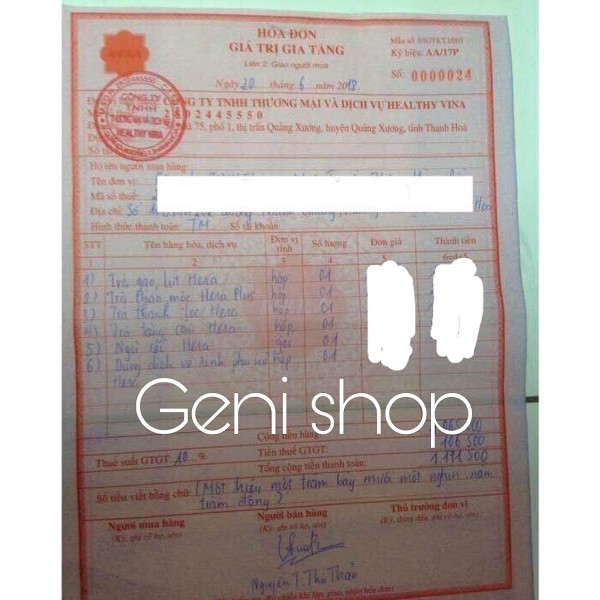 HÓA ĐƠN
GIÁ TRỊ GIA TĂNG
Liên 2: Giao người mua
Ngày 20 tháng 6 năm 2018
Mẫu số: 01GTKT3/001
Ký hiệu: AA/17P
Số: 0000024
CÔNG TY TNHH THƯƠNG MẠI VÀ DỊCH VỤ HEALTHY VINA
2802445550
75, phố 1, thị trấn Quảng Xương, huyện Quảng Xương, tỉnh Thanh Hoá
CÔNG TY
TNHH
THƯƠNG MẠI VÀ DỊCH VỤ
HEALTHY VINA
Họ tên người mua hàng:
Tên đơn vị:
Mã số thuế:
Địa chỉ: Số
Hình thức thanh toán: TM Số tài khoản:
STT Tên hàng hóa, dịch vụ Đơn vị tính Số lượng Đơn giá Thành tiền
1 2 3 4 5 6=4x5
1) Trà gạo lứt Hera hộp 01
2) Trà thảo mộc Hera Plus hộp 01
3) Trà thanh lọc Hera hộp 01
4) Trà tăng cân Hera hộp 01
5) Ngũ cốc Hera gói 01
6) Dung dịch vệ sinh phụ nữ hộp 01
Hera
Geni shop
Cộng tiền hàng:
Thuế suất GTGT: 10 % Tiền thuế GTGT: 106 500
Tổng cộng tiền thanh toán: 1.171.500
Số tiền viết bằng chữ: (Một triệu một trăm bảy mươi một nghìn năm
trăm đồng)
Người mua hàng Người bán hàng Thủ trưởng đơn vị
(Ký, ghi rõ họ, tên) (Ký, ghi rõ họ, tên) (Ký, đóng dấu, ghi rõ họ, tên)
Nguyễn T. Thu Thảo